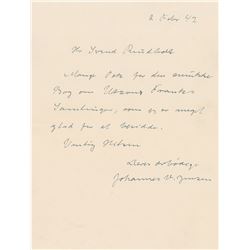 2 Febr 42
Hr Svend Rindholt
Mange Tak for den smukke
Bog om Utzons Franks
Samlinger, som jeg er meget
glad for at besidde.
Venlig Hilsen
Deres ærbødige
Johannes V. Jensen